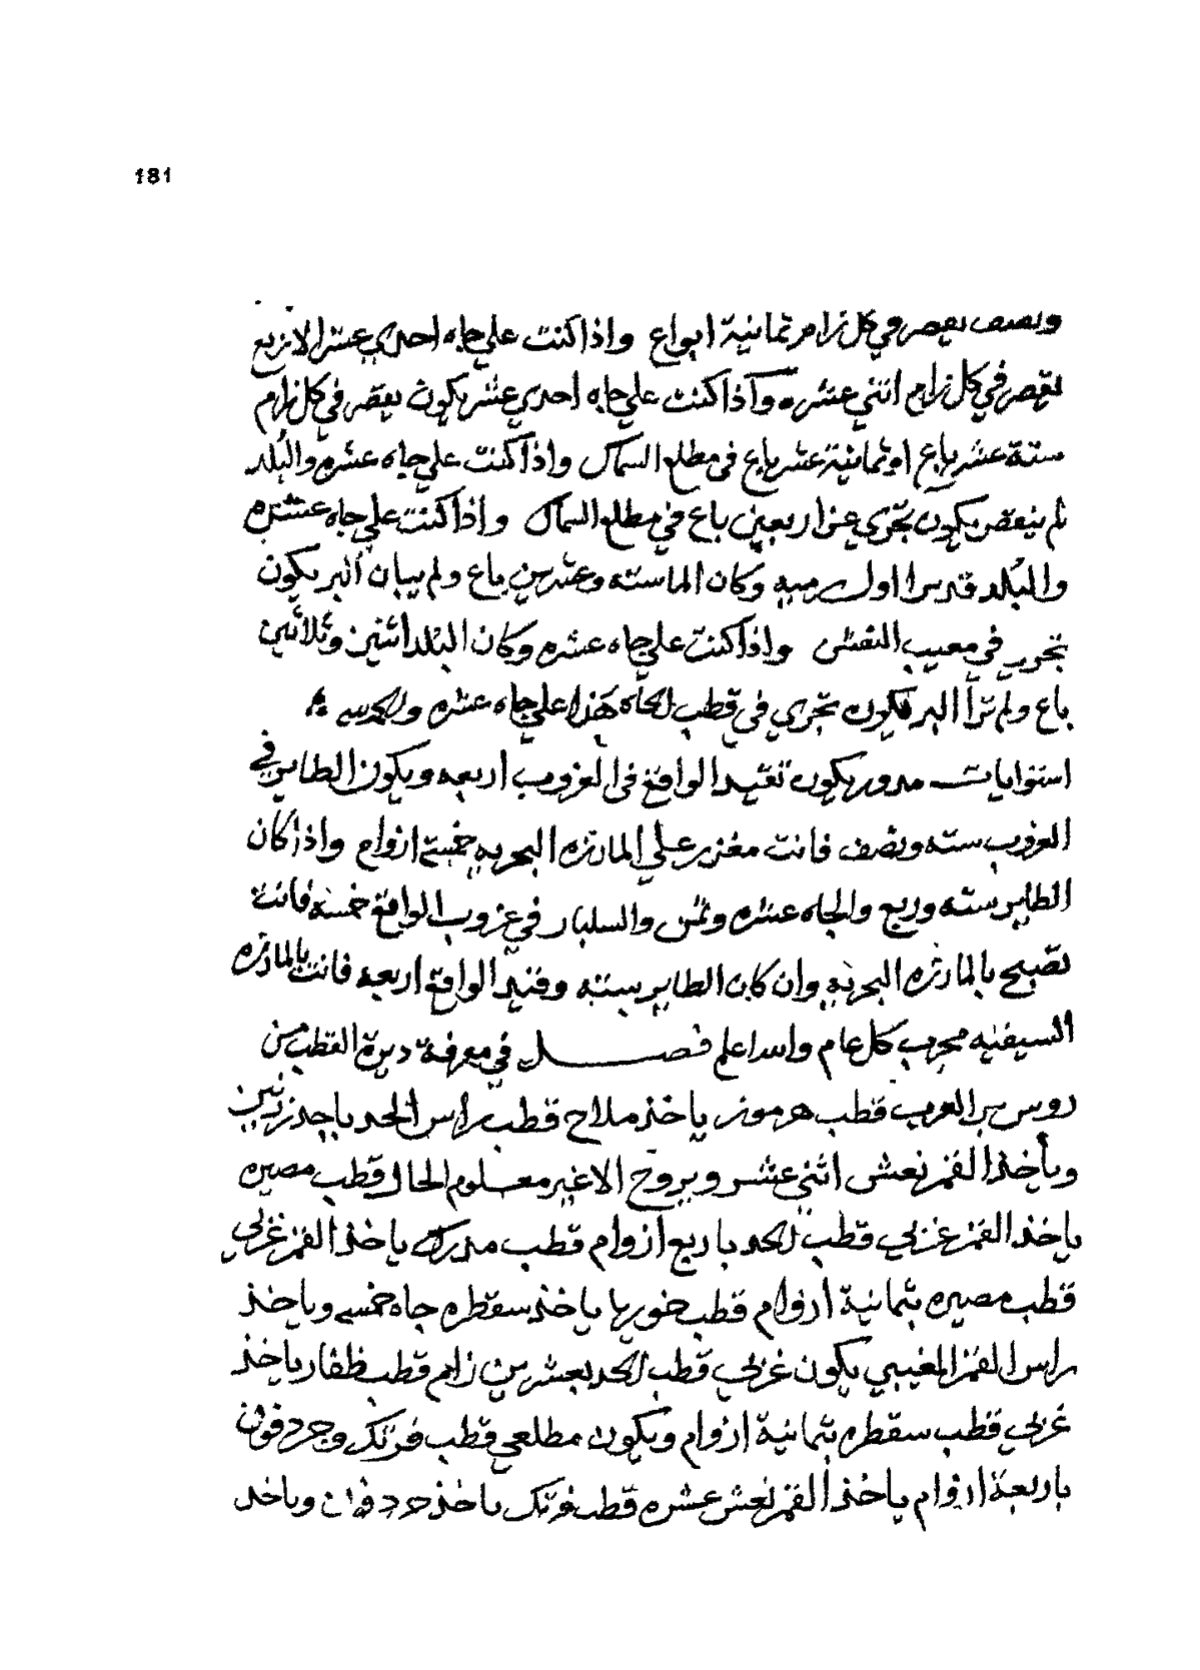 181
ونصف يقصر في كل زام ثمانية ابواع واذا كنت علي جاه احدي عشر الا ربع
يقصر في كل زام اثني عشره واذا كنت علي جاه احدي عشر يكون يقصر في كل زام
ستة عشر باع او ثمانية عشر باع في مطلع السماك واذا كنت علي جاه عشره والبلد
لم ينقص يكون تجري عن اربعين باع في مطلع السماك واذا كنت علي جاه عشره
والبلد اول وكان الما سته وعشرين باع ولم يبان البر يكون
تجري في مغيب النعش واذا كنت علي جاه عشره وكان البلد اثنين وثلاثين
باع ولم ترا البر فيكون تجري في قطب الجاه هذا علي جاه عشره
استوايات مدور يكون تقيد الواقع في الغروب اربعه ويكون الطاير في
الغروب سته ونصف فانت مغزر علي المارزه البحريه خمسة ازوام واذا كان
الطاير سته وربع والجاه عشره وثمن والسلبار في غروب الواقع خمسه فانت
تصبح بالمارزه البحريه وان كان الطاير سته وقيد الواقع اربعه فانت بالمارزه
السيفيه مجرب كل عام والله اعلم فصل في معرفة ديرة القطب من
روس بر العرب قطب هرموز ياخذ ملاح قطب راس الحد ياخذ زرين
وياخذ القمر نعش اثني عشر ويروح الا غير معلوم الحال قطب مصيره
ياخذ القمر غربي قطب الحد باربع ازوام قطب مدركه ياخذ القمر غربي
قطب مصيره بثمانية ازوام قطب خوريا ياخذ سقطره جاه خمسه وياخذ
راس القمر المغيبي يكون غربي قطب الحد بعشرين زام قطب ظفار ياخذ
غربي قطب سقطره بثمانية ازوام ويكون مطلعي قطب فرتك وجردفون
باربعة ازوام ياخذ القمر نعش عشره قطب فرتك ياخذ جردفون وياخذ